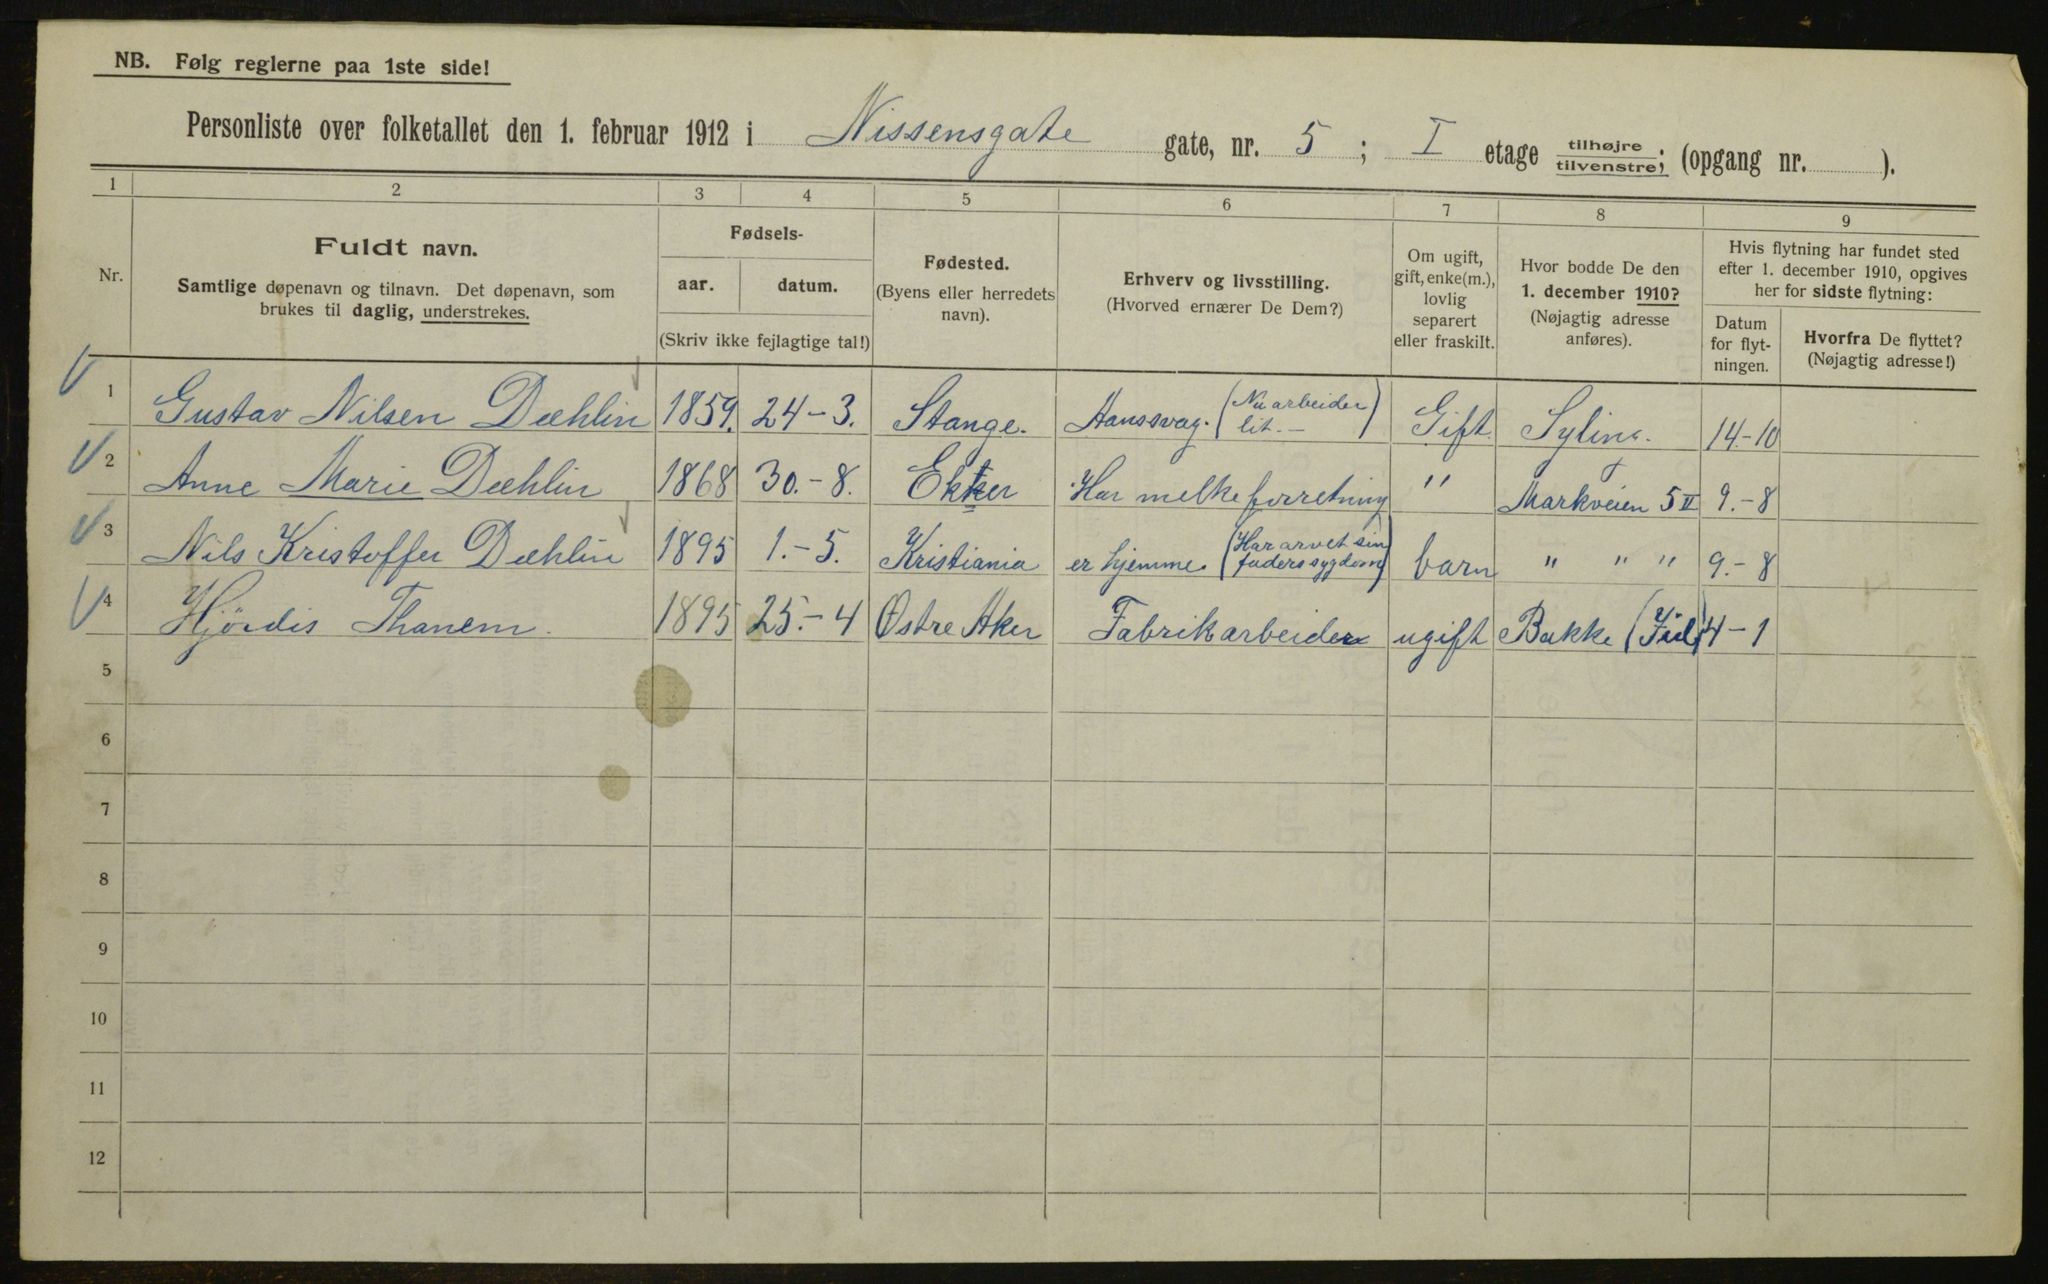 NB. Følg reglerne paa 1ste side!
Personliste over folketallet den 1. februar 1912 i Nissensgate gate, nr. 5 ; I etage tilhøjre tilvenstre; (opgang nr. ).
1 2 3 4 5 6 7 8 9
Nr.
Fuldt navn.
Samtlige døpenavn og tilnavn. Det døpenavn, som
brukes til daglig, understrekes.
Fødsels-
aar. datum.
(Skriv ikke fejlagtige tal!)
Fødested.
(Byens eller herredets
navn).
Erhverv og livsstilling.
(Hvorved ernærer De Dem?)
Om ugift,
gift, enke(m.),
lovlig
separert
eller fraskilt.
Hvor bodde De den
1. december 1910?
(Nøjagtig adresse
anføres).
Hvis flytning har fundet sted
efter 1. december 1910, opgives
her for sidste flytning:
Datum
for flyt-
ningen.
Hvorfra De flyttet?
(Nøjagtig adresse!)
1 Gustav Nilsen Dæhlin 1859. 24-3. Stange. (Nu arbeider lit.-) Gift. 14.-10
2 Anne Marie Dæhlin 1868 30.-8. Eker Har melkeforretning " Markveien 5 II 9.-8
3 Nils Kristoffer Dæhlin 1895 1.-5. Kristiania er hjemme. (Har arvet sin faders sygdom) barn " " " 9.-8
4 Hjördis Thanem. 1895 25.-4 Østre Aker Fabrikarbeider ugift Bakke 4-1
5
6
7
8
9
10
11
12